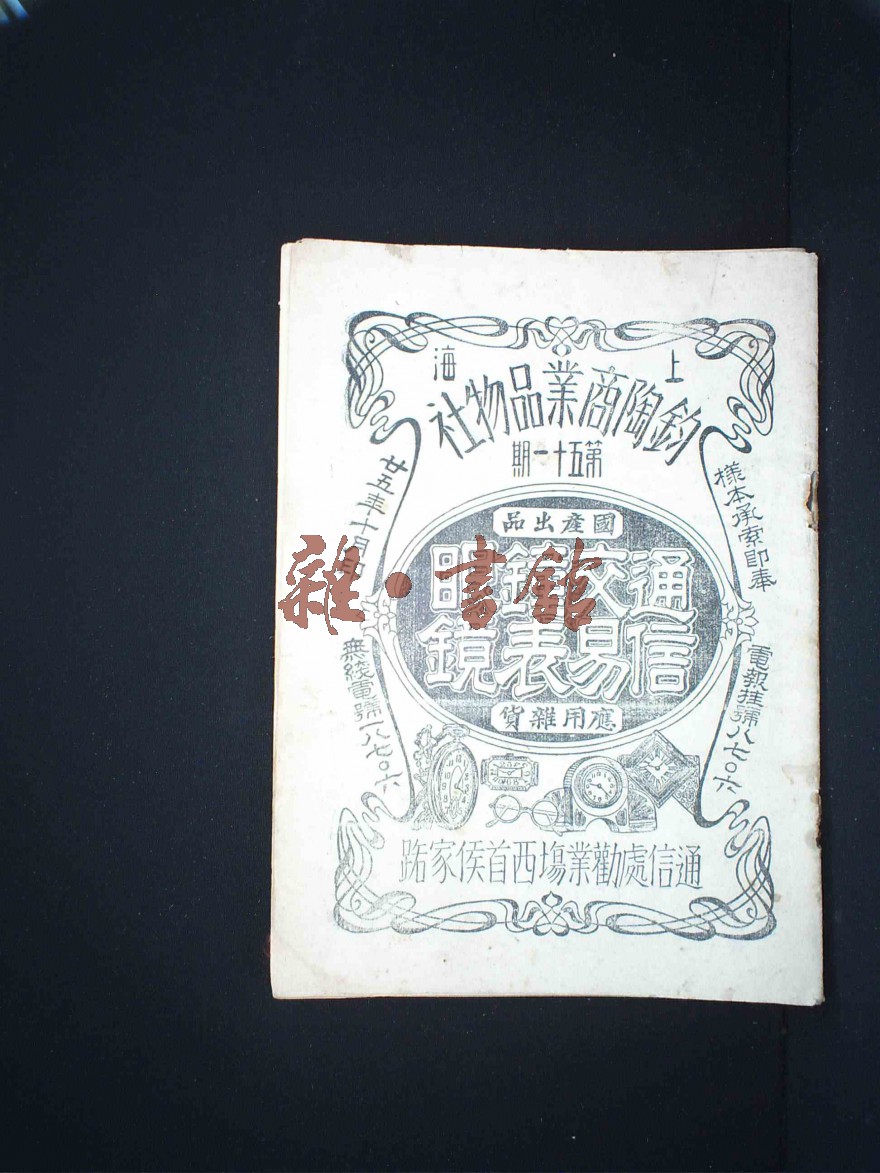 上海
鈞陶商業品物社
第五十一期
樣本承索即奉
電報挂號八七〇六
廿五年十月
無綫電號一八七〇六
國產出品
通交鐘眼
信易表鏡
應用雜貨
通信處勸業塲西首侯家路
雜·書館